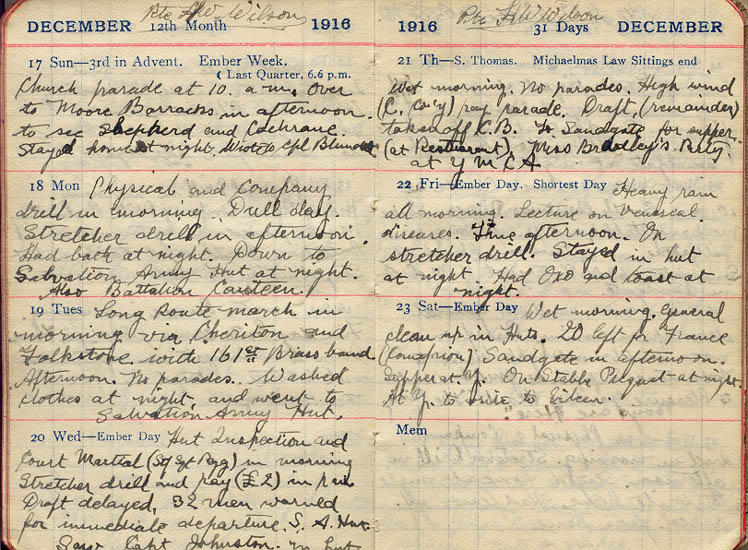 Pte H W Wilson
DECEMBER 12th Month 1916
17 Sun—3rd in Advent. Ember Week.
Last Quarter, 6.6 p.m.
Church parade at 10. a.m. Over
to Moore Barracks in afternoon
to see Shepherd and Cochrane.
Stayed home at night. Wrote to Cpl
18 Mon Physical and Company
drill in morning. Dull day.
Stretcher drill in afternoon.
Had bath at night. Down to
Salvation Army Hut at night.
Also Battalion Canteen.
19 Tues Long Route march in
morning via Cheriton and
Folkstone with 161st Brass band.
Afternoon. No parades. Washed
clothes at night, and went to
Salvation Army Hut.
20 Wed—Ember Day Hut Inspection and
Court Martial (Sgt) in morning
Stretcher drill and pay (£2) in p.m.
Draft delayed, 32 men warned
for immediate departure. S. A. Hut.
Saw Capt Johnston. In hut
Pte H W Wilson
1916 31 Days DECEMBER
21 Th—S. Thomas. Michaelmas Law Sittings end
Wet morning. No parades. High wind
(C. Co'y) pay parade. Draft, (remainder)
taken off C.B. To Sandgate for supper.
(at Restaurant). Miss Bradley's Party.
at Y M C A
22 Fri—Ember Day. Shortest Day Heavy rain
all morning. Lecture on Venereal
diseases. Fine afternoon. On
stretcher drill. Stayed in hut
at night. Had Oxo and toast at
night.
23 Sat—Ember Day Wet morning. General
clean up in Huts. 20 left for France
Sandgate in afternoon.
Supper at Y. On Stable Picquet at night.
At Y. to write to Eileen.
Mem